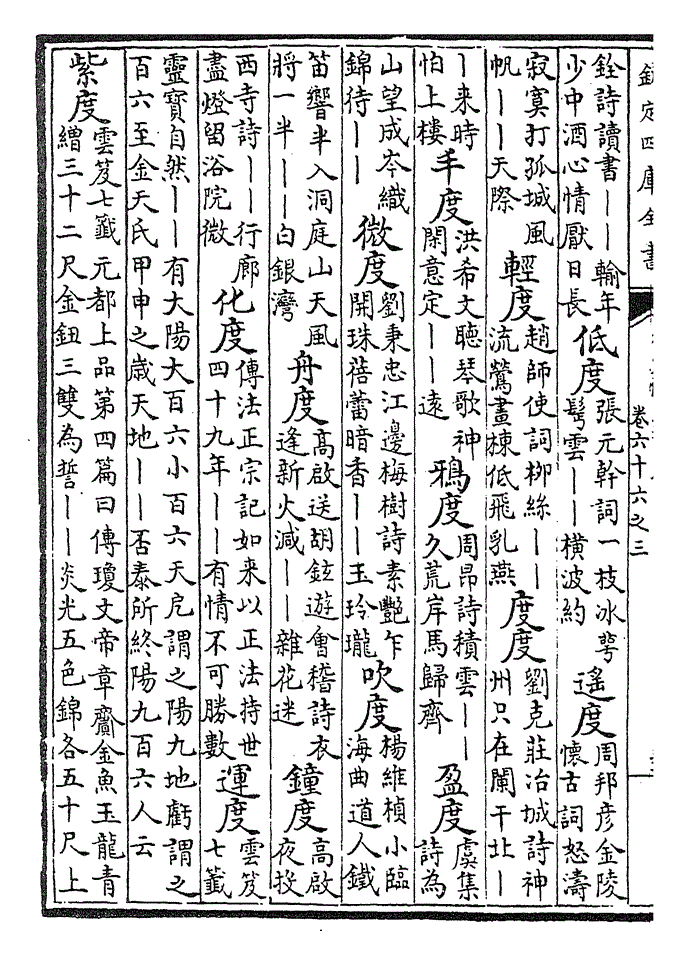 欽定四庫全書 卷六十六之三
銓詩讀書｜｜輸年少中酒心情厭日長 低度 張元幹詞一枝冰萼鬅雲｜｜橫波約 遥度 周邦彦金陵懷古詞怒濤
寂寞打孤城風帆｜｜天際 輕度 趙師使詞柳絲｜｜流鶯畫棟低飛乳燕 度度 劉克莊冶城詩神州只在闌干北｜
｜来時怕上樓 手度 洪希文聽琴歌神閑意定｜｜遠 鴉度 周昂詩積雲｜｜久荒岸馬歸齊 盈度 虞集詩為
山望成岑織錦待｜｜ 微度 劉秉忠江邊梅樹詩素艷乍開珠蓓蕾暗香｜｜玉玲瓏 吹度 楊維楨小臨海曲道人鐵
笛響半入洞庭山天風將一半｜｜白銀灣 舟度 高啟送胡鉉遊會稽詩衣逢新火減｜｜雜花迷 鐘度 高啟夜投
西寺詩｜｜行廊盡燈留浴院微 化度 傳法正宗記如来以正法持世四十九年｜｜有情不可勝數 運度 雲笈七籤
靈寶自然｜｜有大陽大百六小百六天戹謂之陽九地虧謂之百六至金天氏甲申之歳天地｜｜否泰所終陽九百六人云
紫度 雲笈七籤元都上品第四篇曰傳瓊文帝章齎金魚玉龍青繒三十二尺金鈕三雙為誓｜｜炎光五色錦各五十尺上